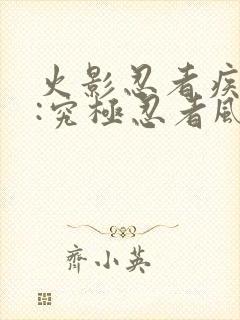 火影忍者疾
:究極忍者風
齊小英